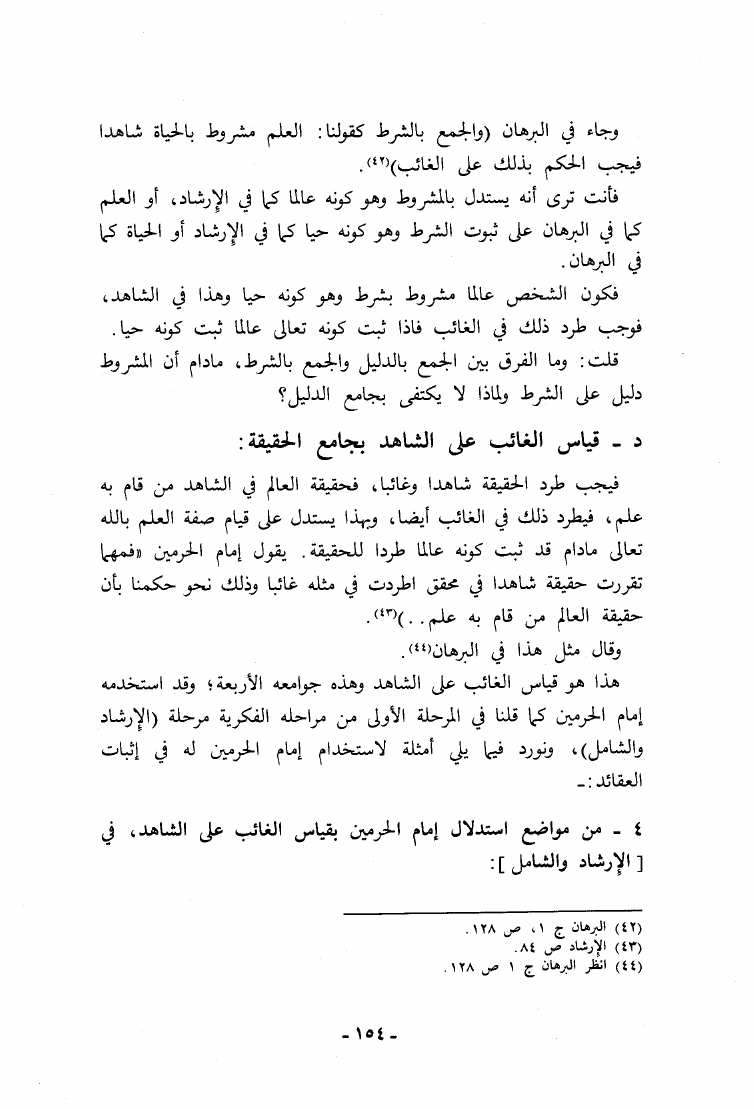 وجاء في البرهان (والجمع بالشرط كقولنا: العلم مشروط بالحياة شاهدا
فيجب الحكم بذلك على الغائب)(٤٢).
فأنت ترى أنه يستدل بالمشروط وهو كونه عالما كما في الإرشاد، أو العلم
كما في البرهان على ثبوت الشرط وهو كونه حيا كما في الإرشاد أو الحياة كما
في البرهان.
فكون الشخص عالما مشروط بشرط وهو كونه حيا وهذا في الشاهد،
فوجب طرد ذلك في الغائب فاذا ثبت كونه تعالى عالما ثبت كونه حيا.
قلت: وما الفرق بين الجمع بالدليل والجمع بالشرط، مادام أن المشروط
دليل على الشرط ولماذا لا يكتفى بجامع الدليل؟
د - قياس الغائب على الشاهد بجامع الحقيقة:
فيجب طرد الحقيقة شاهدا وغائبا، فحقيقة العالم في الشاهد من قام به
علم، فيطرد ذلك في الغائب أيضا، وبهذا يستدل على قيام صفة العلم بالله
تعالى مادام قد ثبت كونه عالما طردا للحقيقة. يقول إمام الحرمين «فمهما
تقررت حقيقة شاهدا في محقق اطردت في مثله غائبا وذلك نحو حكمنا بأن
حقيقة العالم من قام به علم..)(٤٣).
وقال مثل هذا في البرهان(٤٤).
هذا هو قياس الغائب على الشاهد وهذه جوامعه الأربعة؛ وقد استخدمه
إمام الحرمين كما قلنا في المرحلة الأولى من مراحله الفكرية مرحلة (الإرشاد
والشامل)، ونورد فيما يلي أمثلة لاستخدام إمام الحرمين له في إثبات
العقائد:-
٤ - من مواضع استدلال إمام الحرمين بقياس الغائب على الشاهد، في
[الإرشاد والشامل]:
(٤٢) البرهان ج ١، ص ١٢٨.
(٤٣) الإرشاد ص ٨٤.
(٤٤) انظر البرهان ج ١ ص ١٢٨.
- ١٥٤ -